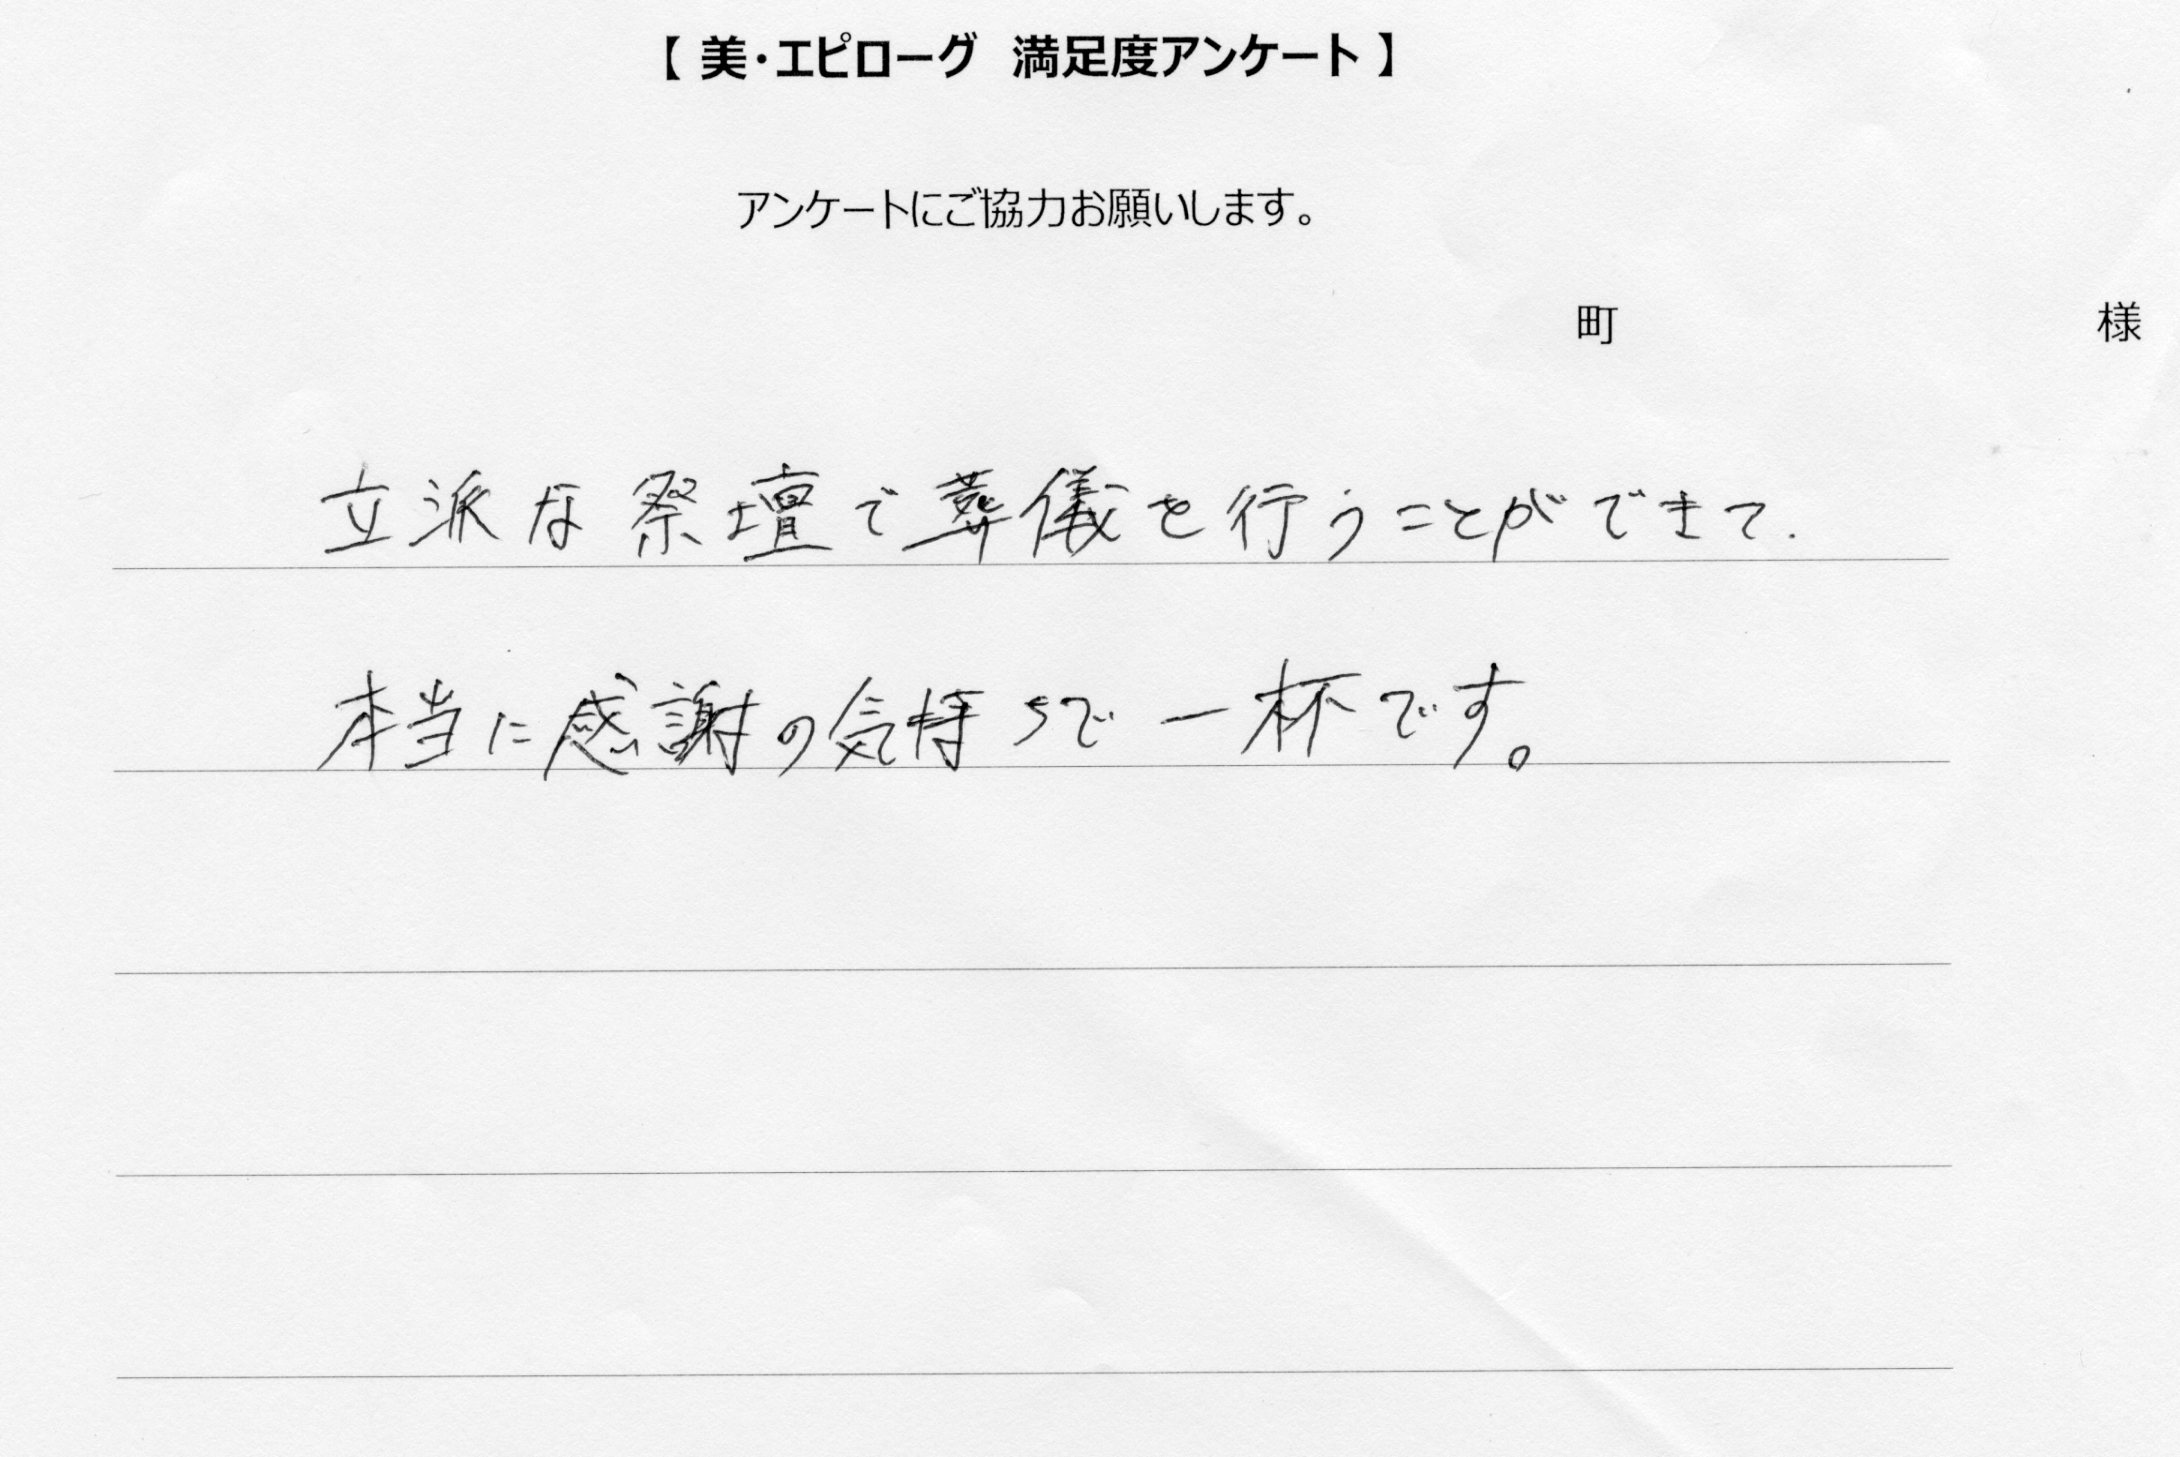 【 美・エピローグ 満足度アンケート 】
アンケートにご協力お願いします。
町 様
立派な祭壇で葬儀を行うことができて.
本当に感謝の気持ちで一杯です。